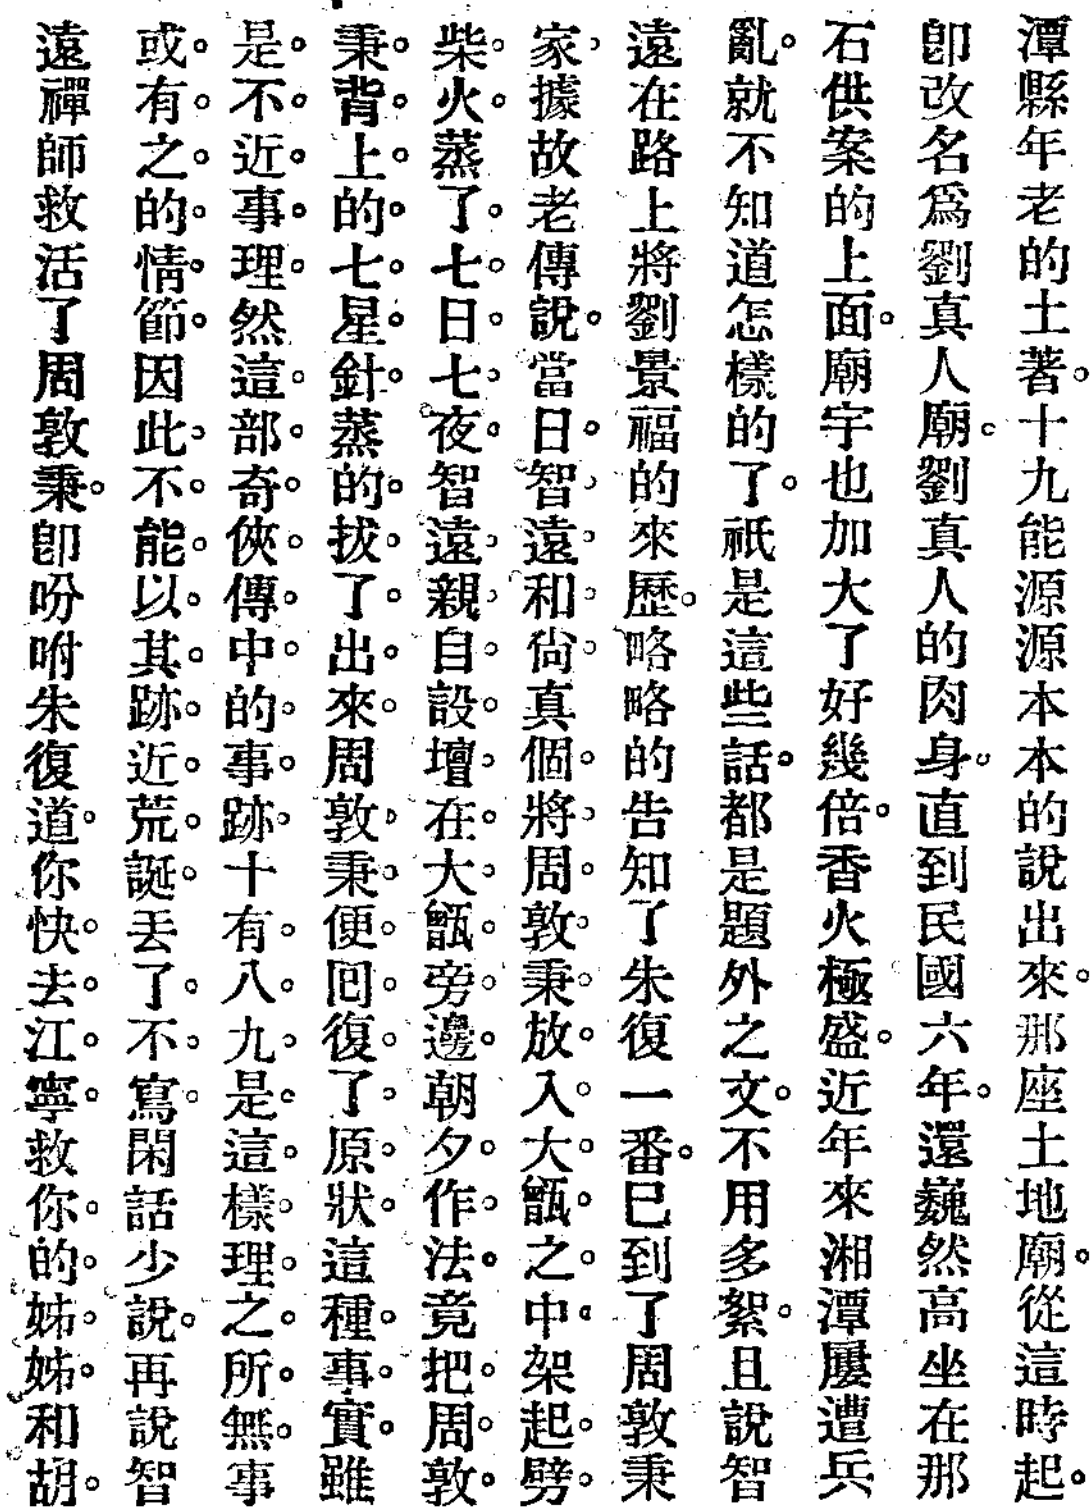 潭縣年老的土著。十九能源源本本的說出來。那座土地廟。從這時起。
卽改名爲劉真人廟。劉真人的肉身。直到民國六年。還巍然高坐在那
石供案的上面。廟宇也加大了好幾倍。香火極盛。近年來湘潭屢遭兵
亂。就不知道怎樣的了。祇是這些話。都是題外之文。不用多絮。且說智
遠在路上將劉景福的來歷。略略的告知了朱復一番。已到了周敦秉
家。據故老傳說。當日。智。遠。和。尙。真個。將。周。敦。秉。放。入。大。甑。之。中。架起。劈。
柴。火。蒸了。七。日。七。夜。智遠。親。自。設。壇。在。大。甑。旁。邊。朝夕。作。法。竟把。周。敦。
秉。背。上。的。七。星。針。蒸的。拔。了。出。來。周敦。秉。便。回。復。了。原。狀。這種。事。實。雖
是。不。近。事。理。然這。部。奇。俠。傳。中。的。事。跡。十有。八。九。是。這。樣。理。之。所。無。事
或。有。之。的。情。節。因此。不。能。以。其。跡。近。荒。誕。丟了。不。寫。閑話少說。再說智
遠禪師救活了周敦秉。卽吩咐朱復道。你快。去。江。寧。救你。的。姊。姊。和胡。